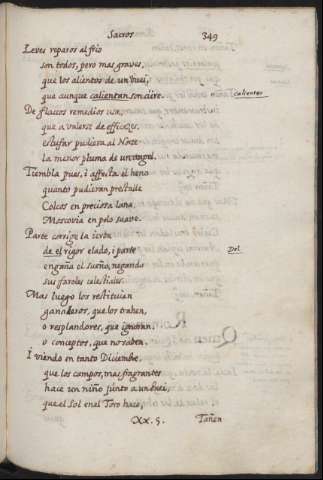 Sacros 349
Leves reparos al frio
son todos, pero mas graves,
que los alientos de un buei,
que aunque calientan son aire.
calientes
De flacos remedios usa,
que a valerse de efficaces,
Estufar pudiera al Norte
la menor pluma de un angel.
Tiembla pues, i affecta el heno
quanto pudieran prestalle
Colcos en preciosa lana,
Moscovia en pelo suave.
Parte corrige la ierva
de el rigor elado, i parte
Del
engaña el sueño, negando
sus faroles celestiales.
Mas luego los restituien
ganaderos, que los trahen,
o resplandores, que ignoran,
o conceptos, que no saben.
I viendo en tanto Diciembre,
que los campos, mas fragrantes
hace un niño junto a un buei,
que el Sol en el Toro hace,
Xx. 5. Tañen